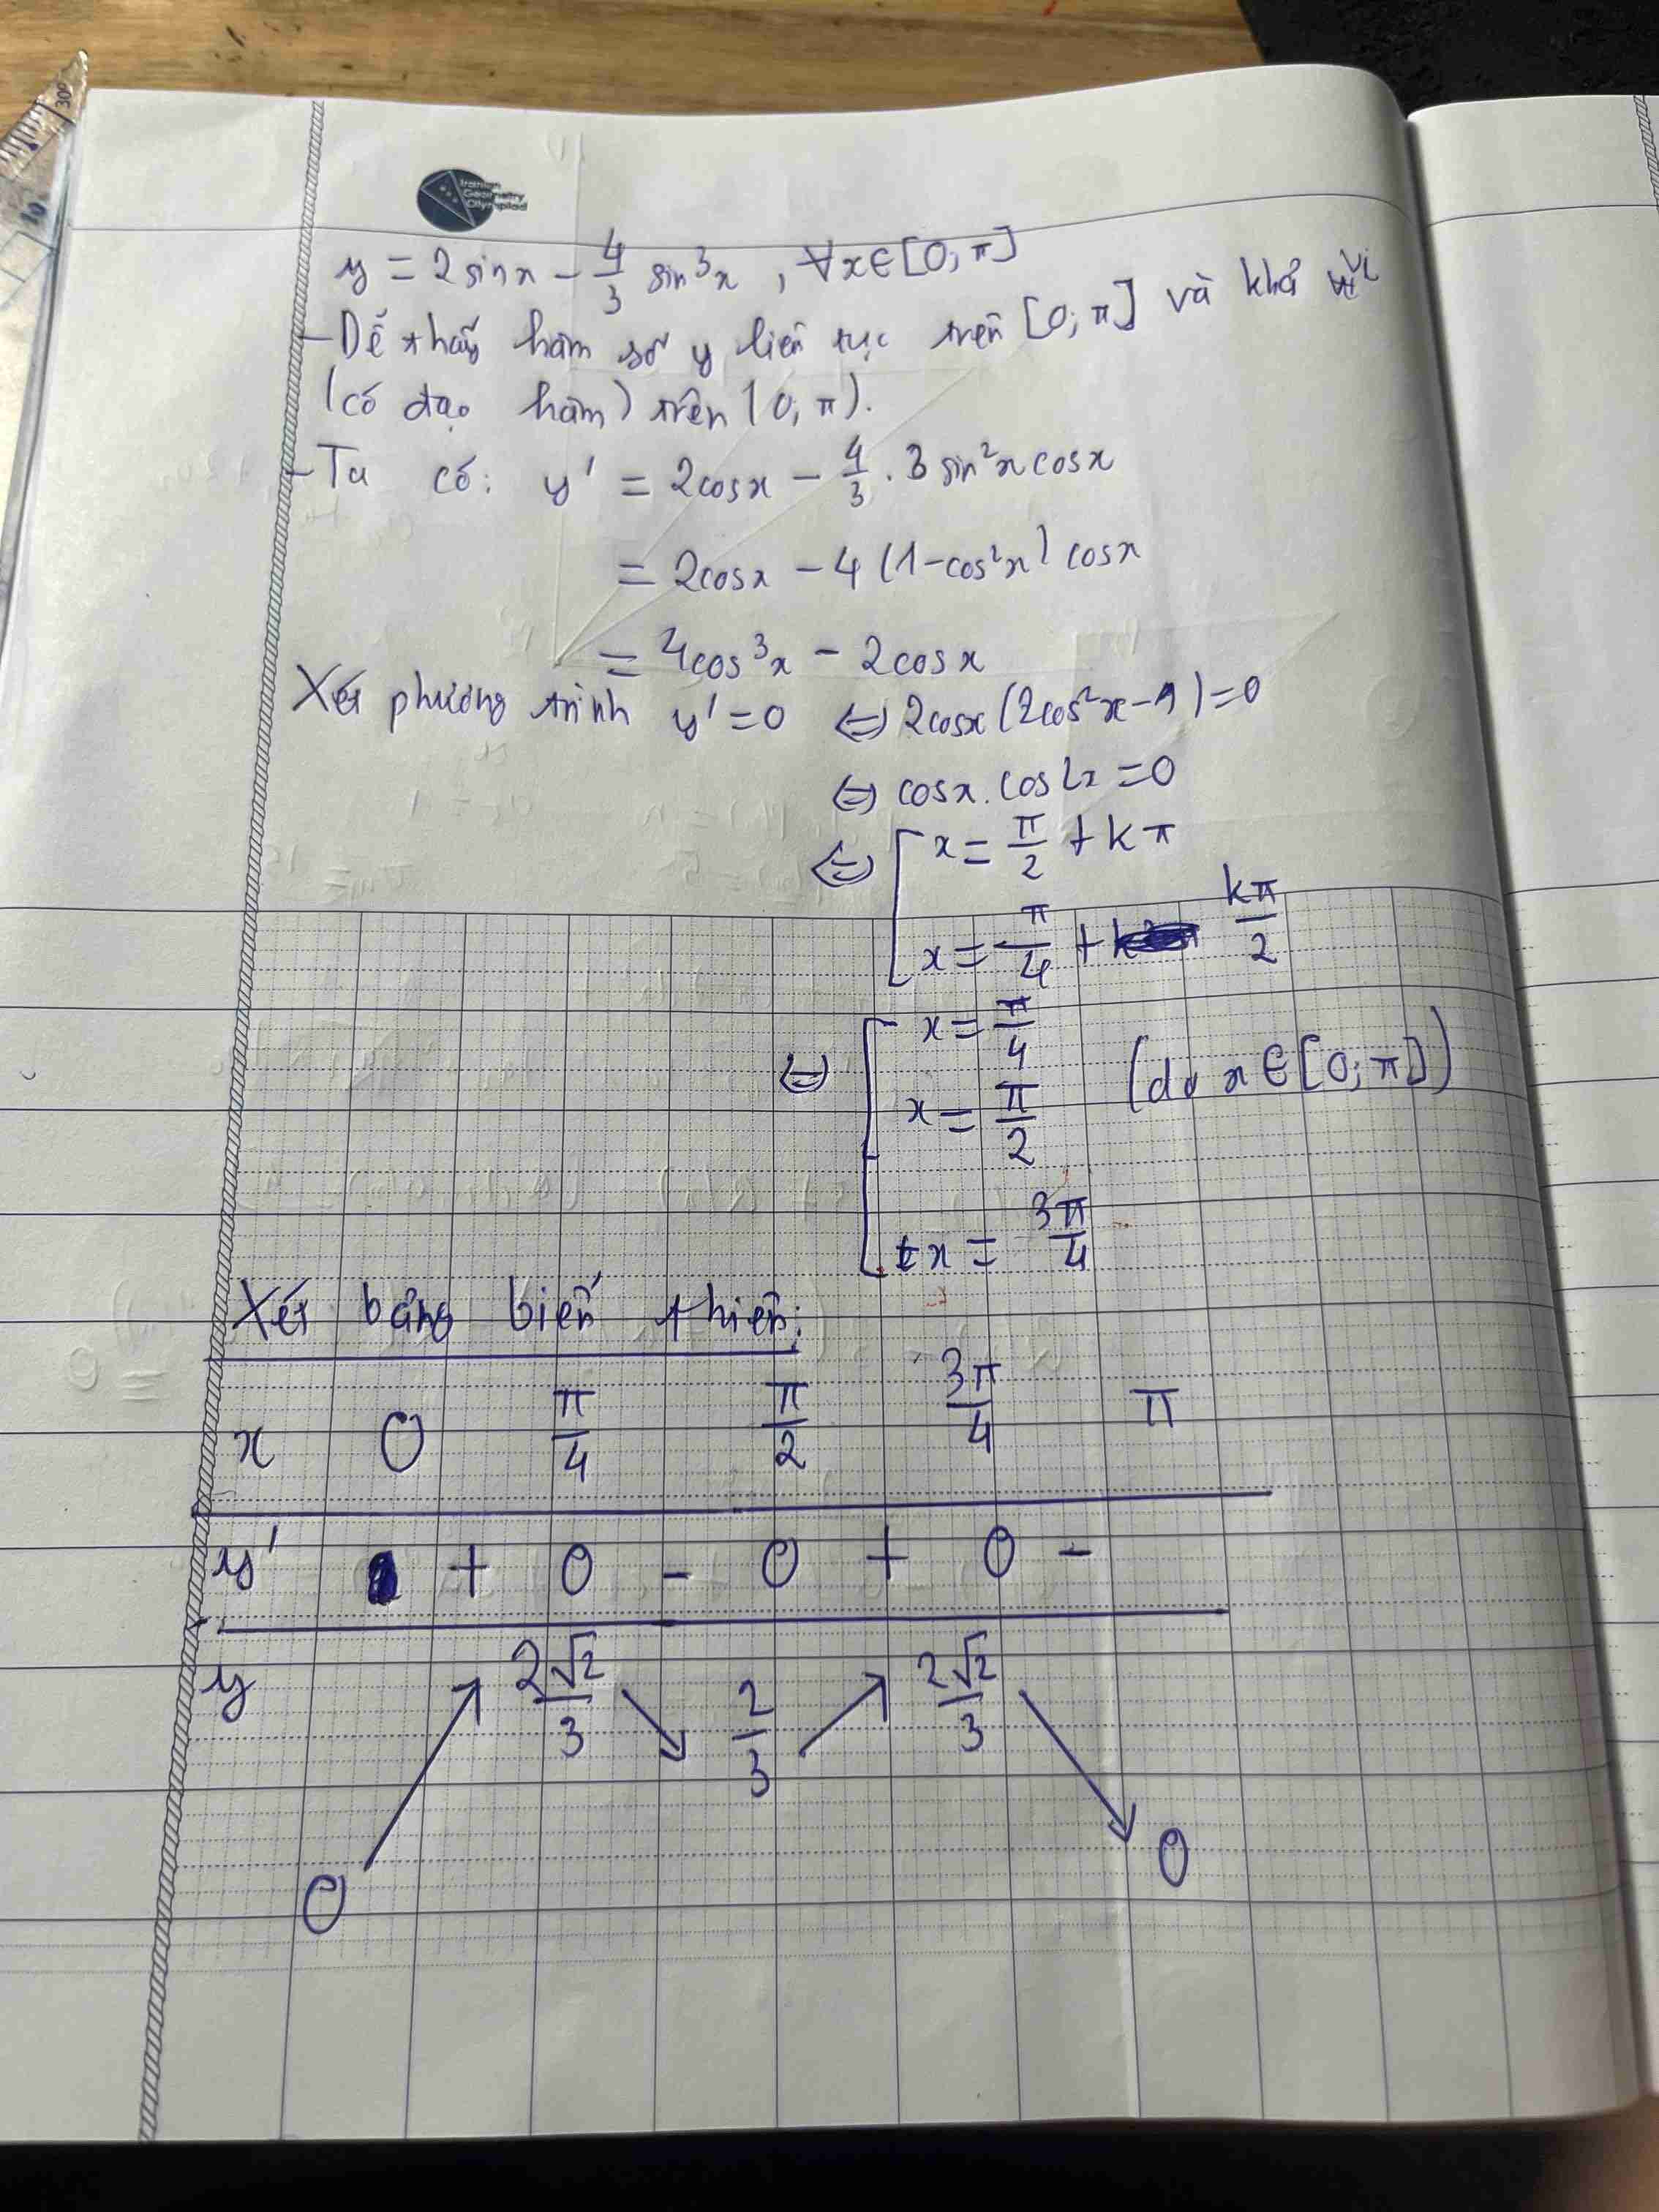 300
10
Iranian
Geometry
Olympiad
y = 2sinx - 4/3 sin³x , ∀x∈[0; π]
- Dễ thấy hàm số y liên tục trên [0; π] và khả vi
(có đạo hàm) trên (0; π).
- Ta có: y' = 2cosx - 4/3 . 3 sin²x cosx
= 2cosx - 4 (1-cos²x) cosx
= 4cos³x - 2cosx
Xét phương trình y' = 0 ⇔ 2cosx (2cos²x-1) = 0
⇔ cosx. cos2x = 0
⇔ [ x = π/2 + kπ
x = π/4 + kπ/2
⇔ [ x = π/4
x = π/2 (do x∈[0; π])
x = 3π/4
Xét bảng biến thiên:
x 0 π/4 π/2 3π/4 π
y' + 0 - 0 + 0 -
y 0 ↗ 2√2/3 ↘ 2/3 ↗ 2√2/3 ↘ 0